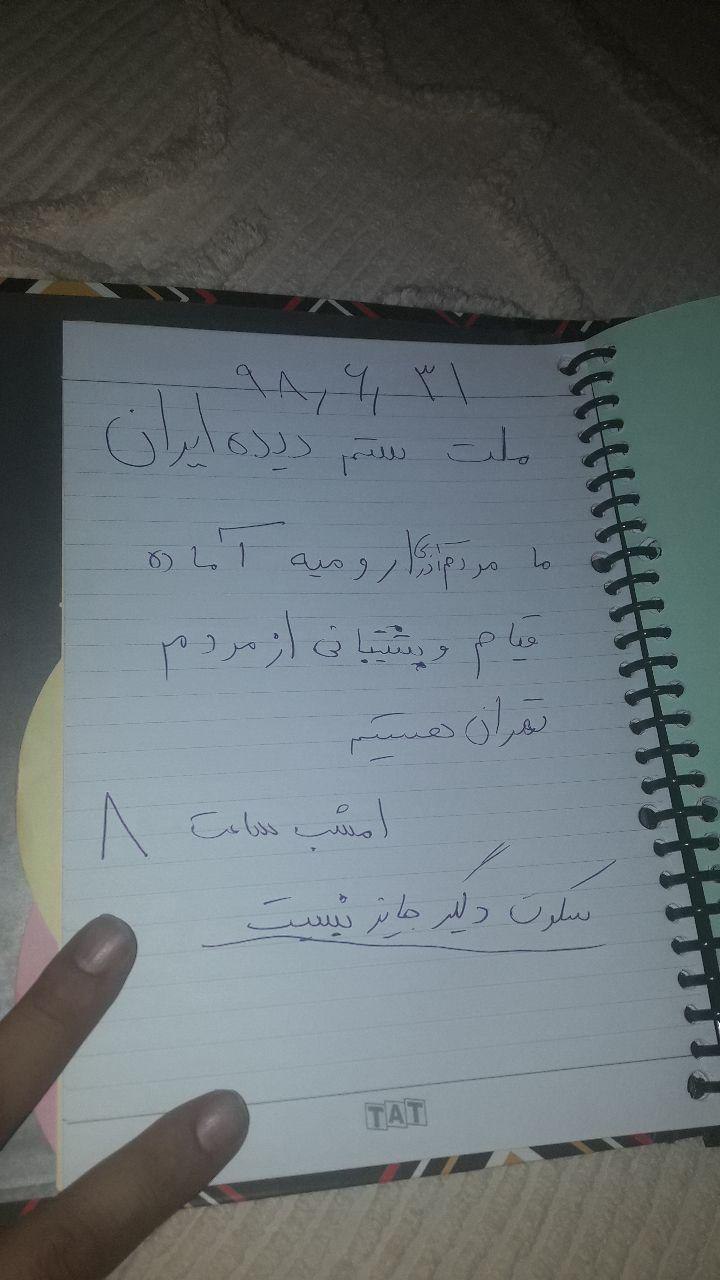 ۹۸٫۶٫۳۱
ملت ستم دیده ایران
ما مردم آذری ارومیه آماده
قیام و پشتیبانی از مردم
تهران هستیم
امشب ساعت ۸
سکوت دگیر جایز نیست
TAT